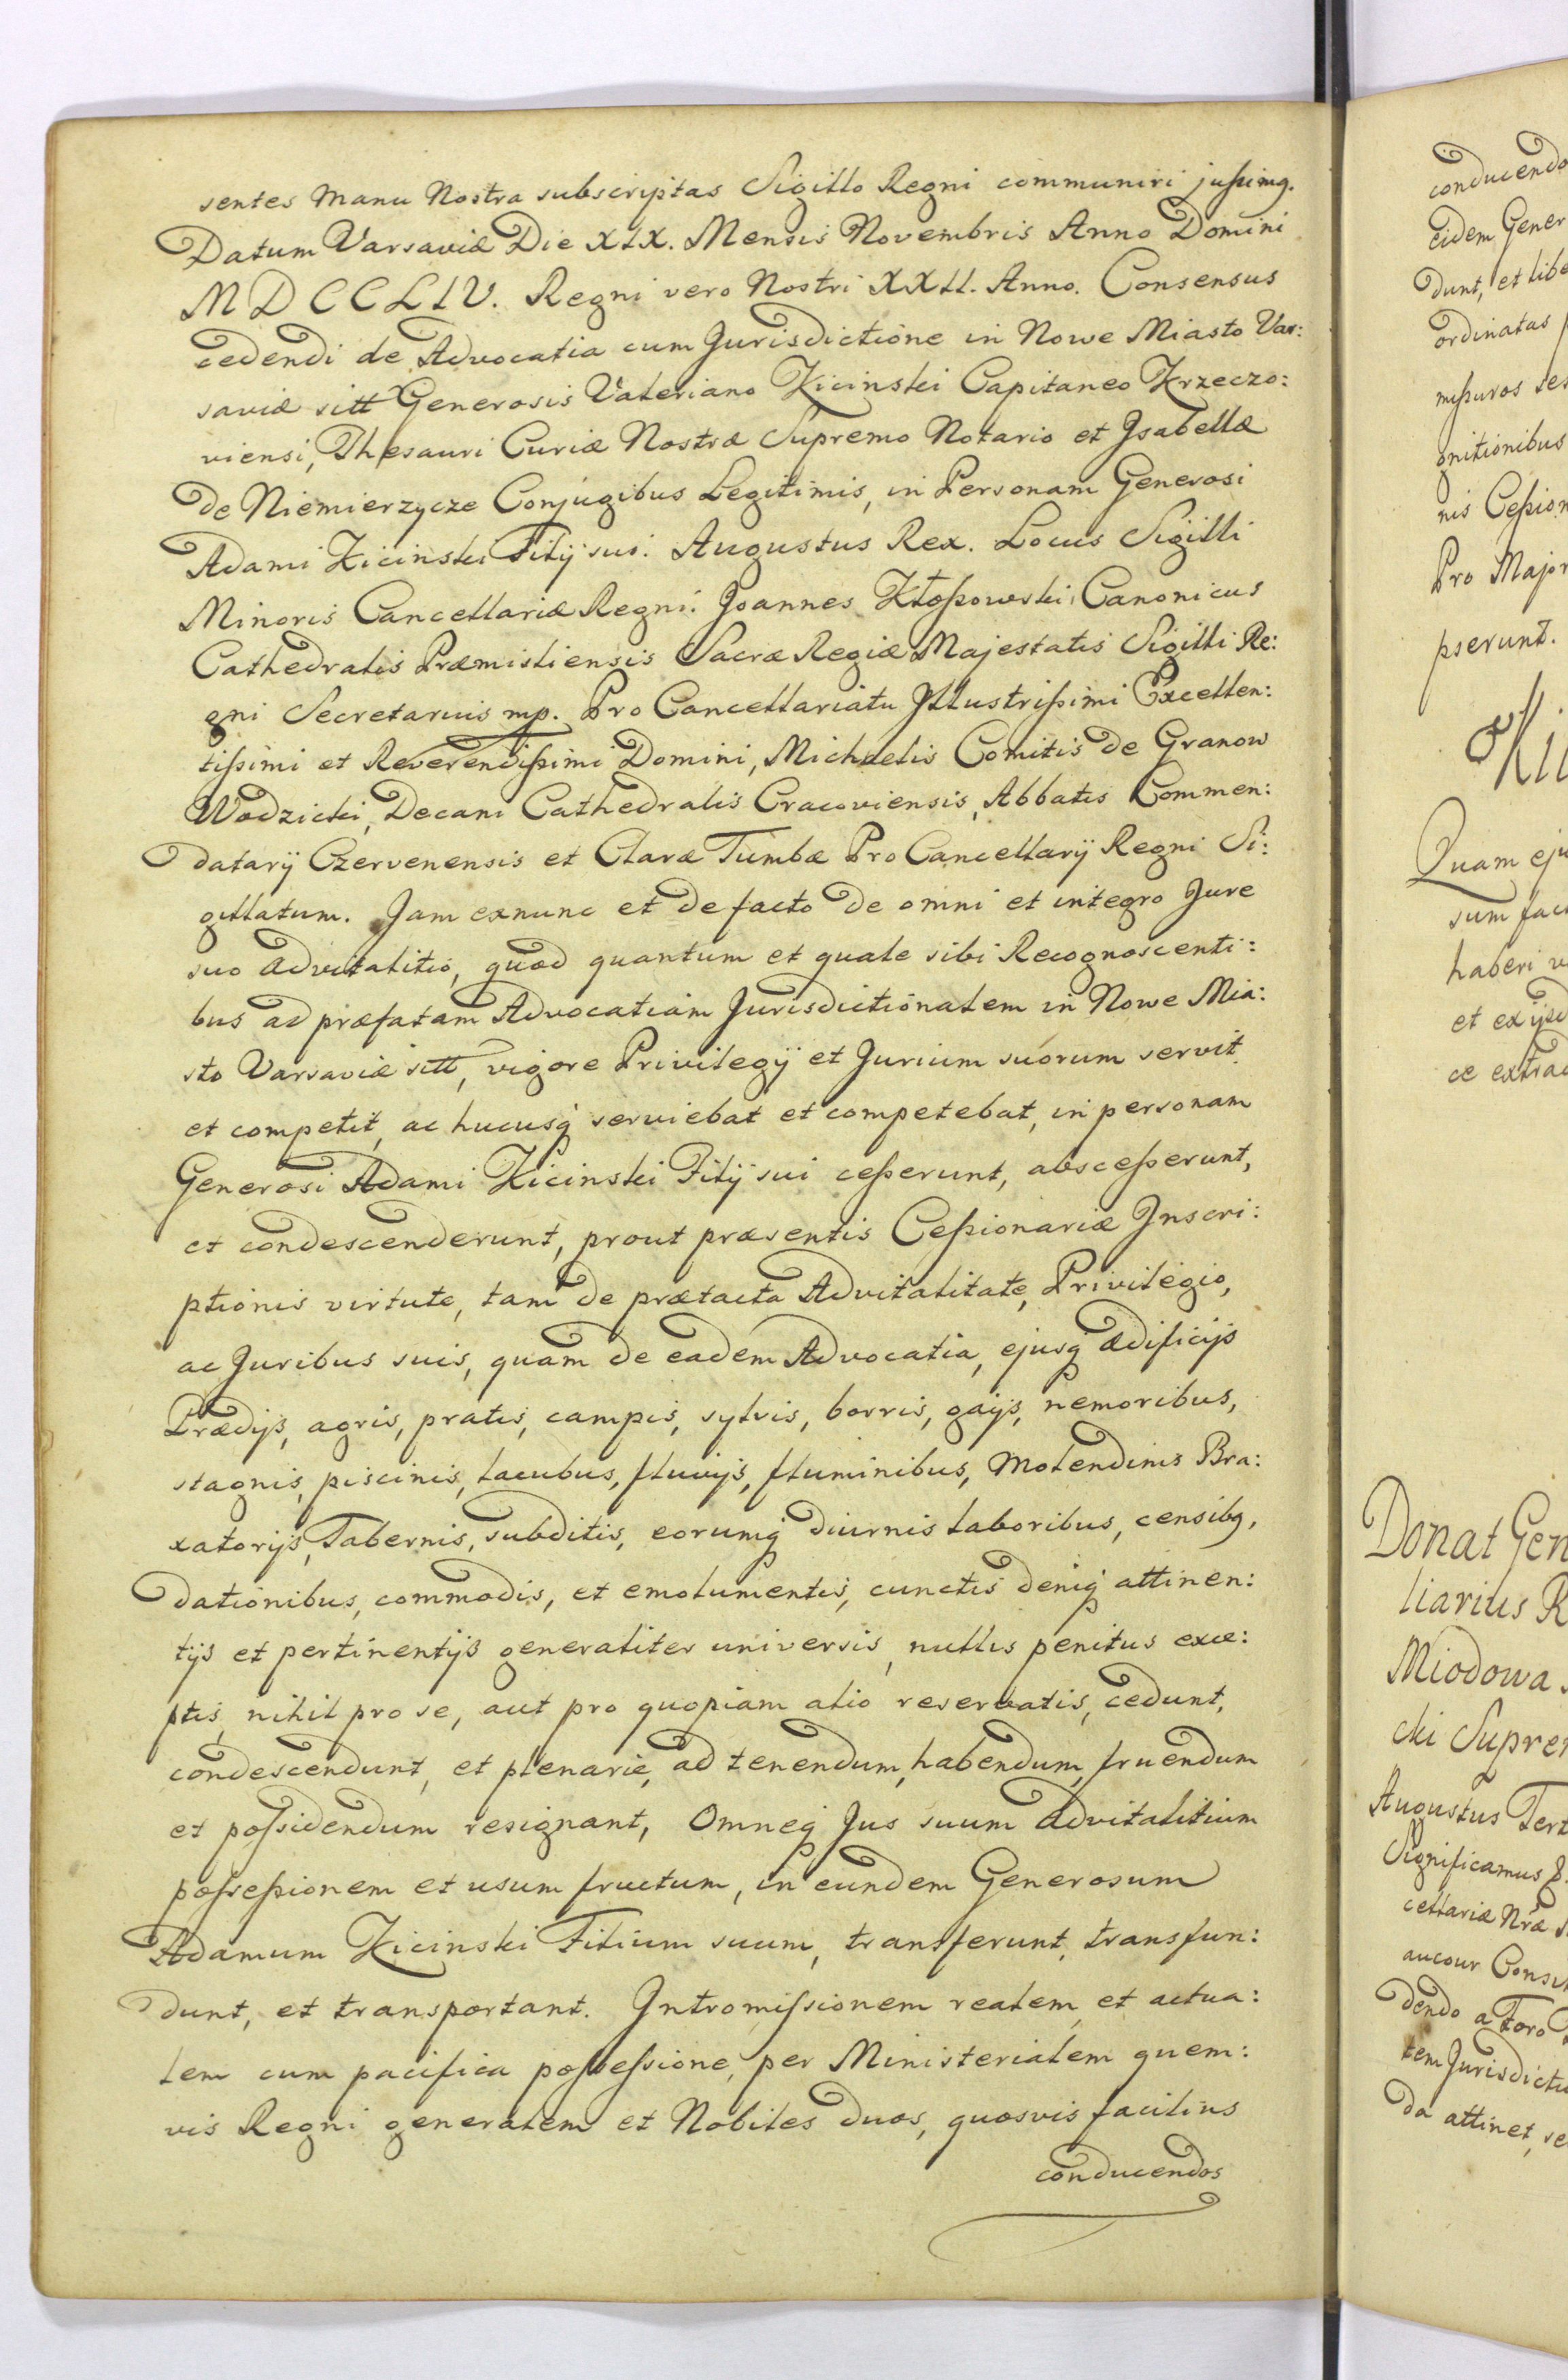 sentes Manu Nostra subscriptas Sigillo Regni communiri jußimg.
Datum Varsaviæ Die XIX. Mensis Novembris Anno Domini
MDCCLIV. Regni vero Nostri XXII. Anno. Consensus
cedendi de Advocatia cum Jurisdictione in Nowe Miasto Var:
saviæ sitt Generosis Valeriano Kicinski Capitaneo Krzeczo:
viensi, Thesauri Curiæ Nostræ Supremo Notario et Jsabellæ
de Niemierzycze Conjugibus Legitimis, in Personam Generosi
Adami Kicinski Filij sui. Augustus Rex. Locus Sigilli
Minoris Cancellariæ Regni. Joannes Kłoßowski Canonicus
Cathedralis Præmisliensis Sacræ Regiæ Majestatis Sigilli Re:
gni Secretarius mp. Pro Cancellariatu Jllustrißimi Excellen:
tißimi et Reverendißimi Domini, Michaelis Comitis de Granow
Wodzicki, Decani Cathedralis Cracoviensis, Abbatis Commen:
datarij Czervenensis et Claræ Tumbæ Pro Cancellarij Regni Si:
gillatum. Jam exnunc et de facto de omni et integro Jure
suo advitalitio, quod quantum et quale sibi Recognoscenti:
bus ad præfatam Advocatiam Jurisdictionalem in Nowe Mia:
sto Varsaviæ sitt, vigore Privilegij et Jurium suorum servit
et competit, ac hucusq serviebat et competebat, in personam
Generosi Adami Kicinski Filij sui ceßerunt, absceßerunt,
et condescenderunt, prout præsentis Ceßionariæ Jnscri:
ptionis virtute, tam de prætacta Advitalitate, Privilegio,
ac Juribus suis, quam de eadem Advocatia, ejusq ædificijs
Prædijs, agris, pratis, campis, sylvis, borris, gaijs, nemoribus,
stagnis, piscinis, lacubus, fluvijs, fluminibus, Molendinis Bra:
xatorijs, Tabernis, subditis, eorumq diurnis laboribus, censibg,
dationibus, commodis, et emolumentis, cunctis deniq attinen:
tijs et pertinentijs generaliter universis, nullis penitus exce:
ptis, nihil pro se, aut pro quopiam alio reservatis, cedunt,
condescendunt, et plenarie, ad tenendum, habendum, fruendum
et poßidendum resignant, Omneq Jus suum advitalitium
poßeßionem et usum fructum, in eundem Generosum
Adamum Kicinski Filium suum, transferunt, transfun:
dunt, et transportant. Jntromißionem realem et actua:
lem cum pacifica poßeßione, per Ministerialem quem:
vis Regni generalem et Nobiles duos, quosvis facilius
conducendos
conducendo
eidem Gener
dunt, et libe
ordinatas
mißuros
gnitionibus
nis Ceßion
Pro Major
pserunt.
Quam eju
sum fac
haberi v
et ex ijsd
ce extrad
Donat Gen
liarius R
Miodowa
cki Suprem
Augustus Tert
Significamus
cellariæ Nræ
aucour Consil
dendo a Foro
tem Jurisdictio
da attinet, se